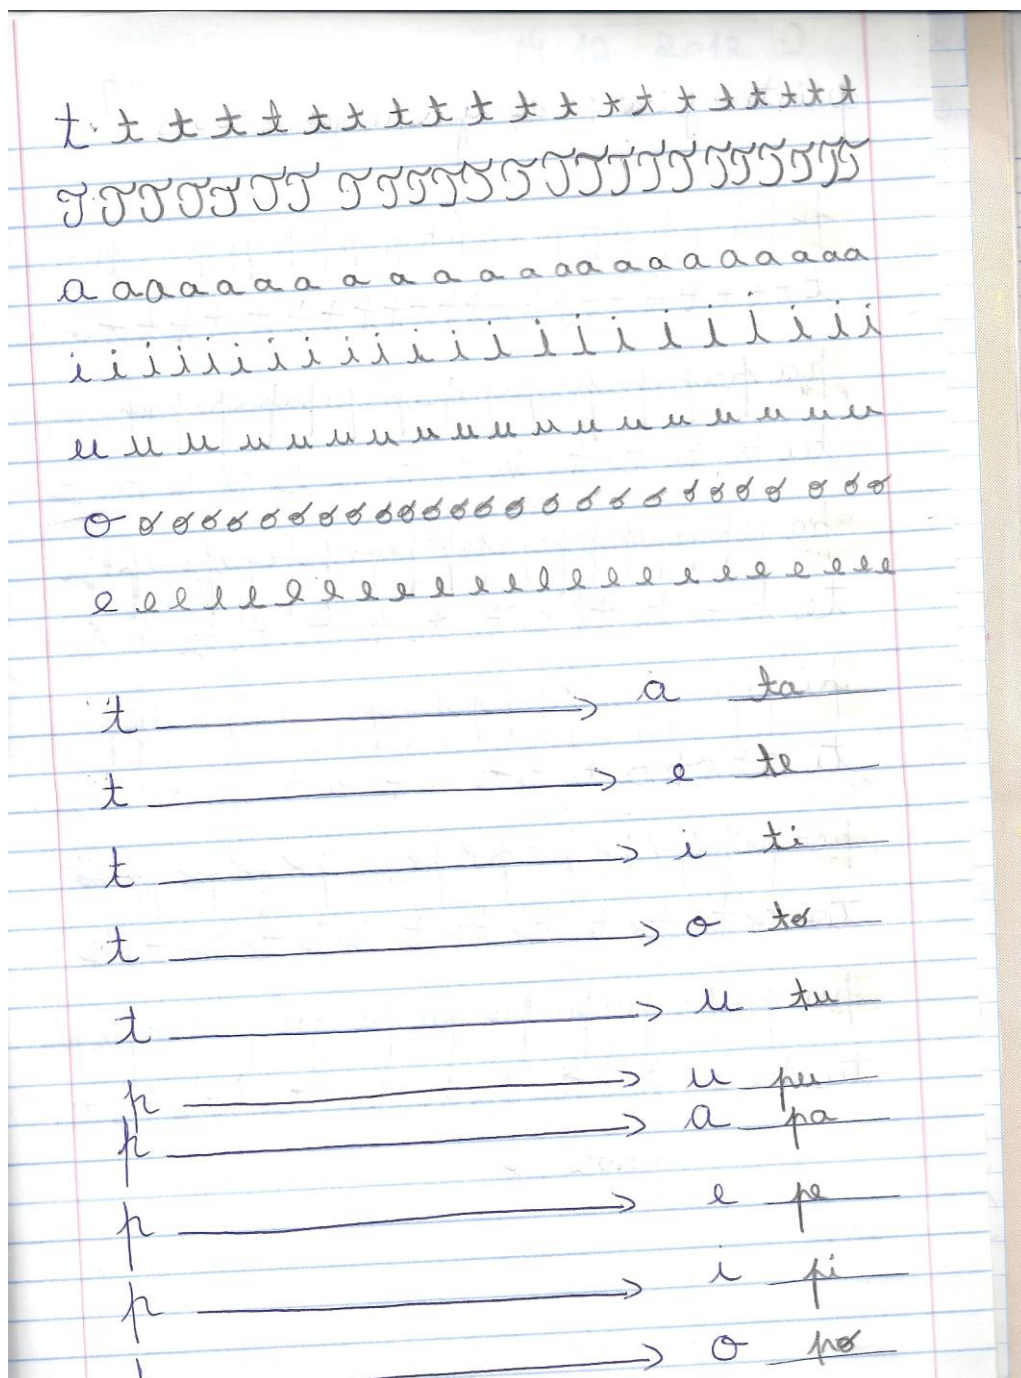 t t t t t t t t t t t t t t t t t t t t
T T T T T T T T T T T T T T T T T T T T T T T T
a a a a a a a a a a a a a a a a a a a a a a
i i i i i i i i i i i i i i i i i i i i i i
u u u u u u u u u u u u u u u u u u
o o o o o o o o o o o o o o o o o o o o o o o o o o
e e e e e e e e e e e e e e e e e e e e e e e
t → a ta
t → e te
t → i ti
t → o to
t → u tu
p → u pu
p → a pa
p → e pe
p → i pi
→ o po